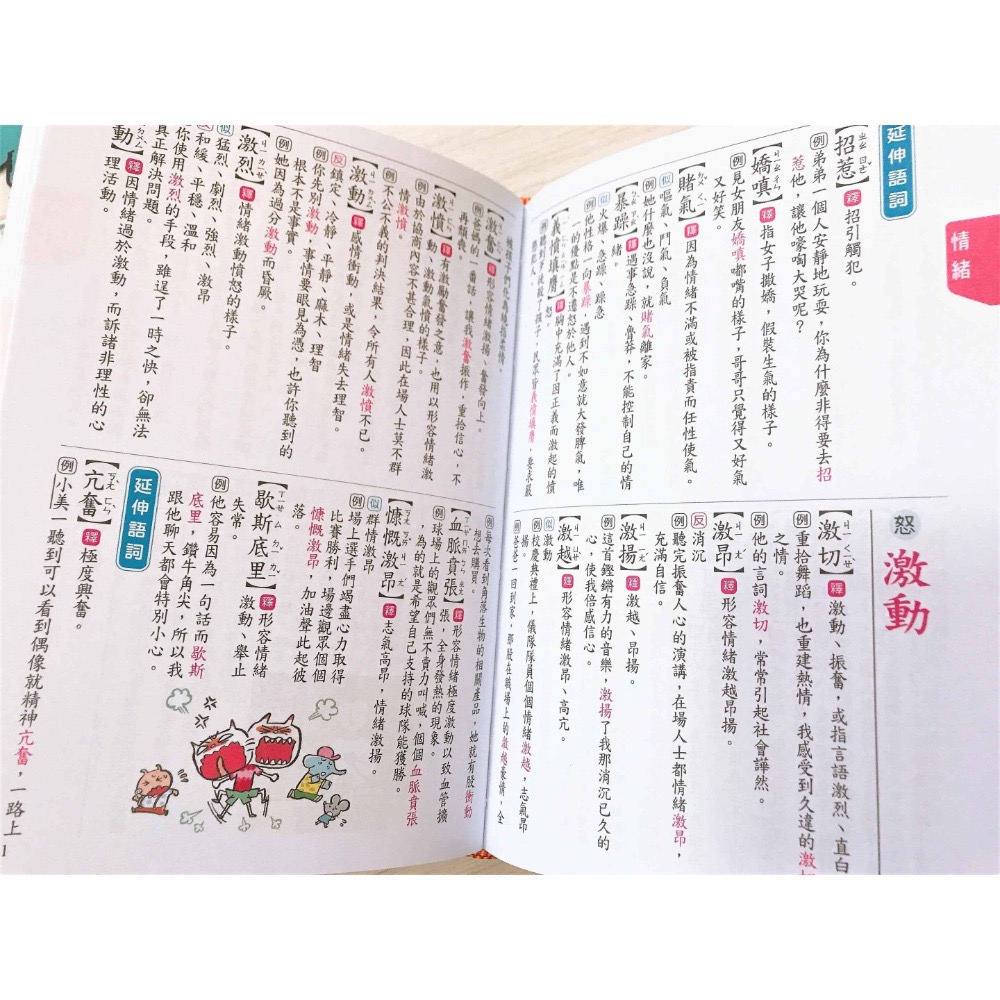 情緒
延伸語詞
【招惹】釋招引觸犯。
例弟弟一個人安靜地玩耍，你為什麼非得要去招
惹他，讓他嚎啕大哭呢？
【嬌嗔】釋指女子撒嬌，假裝生氣的樣子。
例見女朋友嬌嗔嘟嘴的樣子，哥哥只覺得又好氣
又好笑。
【賭氣】釋因為情緒不滿或被指責而任性使氣。
似嘔氣、鬥氣、負氣
例她什麼也沒說，就賭氣離家。
【暴躁】釋遇事急躁、魯莽，不能控制自己的情
緒。
似火爆、急躁、躁急
例他性格一向暴躁，遇到不如意就大發脾氣，唯
一的優點是不遷怒於他人。
【義憤填膺】釋胸中充滿了因正義而激起的憤
怒。
怒
激動
【激切】釋激動、振奮，或指言語激烈、直白
例重拾舞蹈，也重建熱情，我感受到久違的激切
之情。
例他的言詞激切，常常引起社會譁然。
【激昂】釋形容情緒激越昂揚。
反消沉
例聽完振奮人心的演講，在場人士都情緒激昂，
充滿自信。
【激揚】釋激越、昂揚。
例這首鏗鏘有力的音樂，激揚了我那消沉已久的
心，使我倍感信心。
【激越】釋形容情緒激昂、高亢。
似激動
例校慶典禮上，儀隊隊員個個情緒激越，志氣昂
揚。
例爸爸一回到家，那股在職場上的激越豪情，全
【激奮】釋形容情緒激揚，奮發向上。
例爸爸的一番話，讓我激奮振作，重拾信心，不
再頹喪。
【激憤】釋有激勵奮發之意，也用以形容情緒激
動、激動氣憤的樣子。
例由於協商內容不甚合理，因此在場人士莫不群
情激憤。
例不公不義的判決結果，令所有人激憤不已。
【激動】釋感情衝動，或是情緒失去理智。
反鎮定、冷靜、平靜、麻木、理智
例你先別激動，事情要眼見為憑，也許你聽到的
根本不是事實。
例她因為過分激動而昏厥。
【激烈】釋情緒激動憤怒的樣子。
似猛烈、劇烈、強烈、激昂
和緩、平穩、溫和
你使用激烈的手段，雖逞了一時之快，卻無法
真正解決問題。
動】釋因情緒過於激動，而訴諸非理性的心
理活動。
例每次看到角落生物的相關產品，她就有股衝動
想去購買。
【血脈賁張】釋形容情緒極度激動以致血管擴
張，全身發熱的現象。
例球場上的觀眾們無不賣力叫喊，個個血脈賁張
，為的就是希望自己支持的球隊能獲勝。
【慷慨激昂】釋志氣高昂，情緒激揚。
似群情激昂
例場上選手們竭盡心力取得
比賽勝利，場邊觀眾個個
慷慨激昂，加油聲此起彼
落。
【歇斯底里】釋形容情緒
激動、舉止
失常。
例他容易因為一句話而歇斯
底里，鑽牛角尖，所以我
跟他聊天都會特別小心。
延伸語詞
【亢奮】釋極度興奮。
例小美一聽到可以看到偶像就精神亢奮，一路上
1